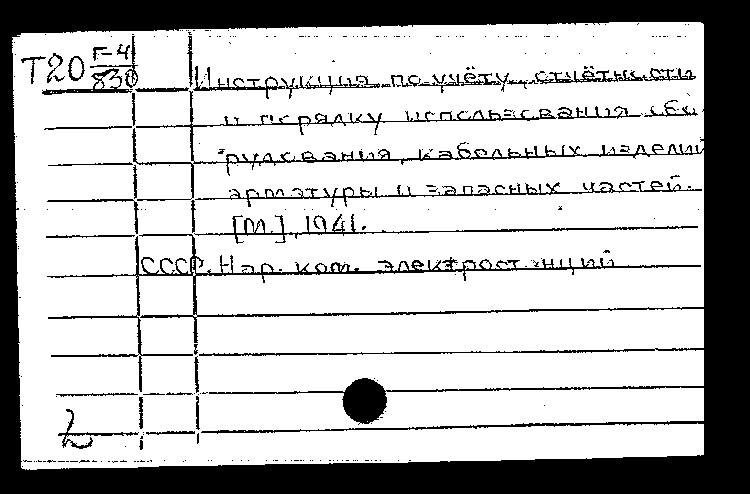 Т20 Г-4/830
Инструкция по учёту, отчётности
и порядку использования обо-
рудования, кабельных изделий
арматуры и запасных частей.
[М.], 1941.
СССР. Нар. ком. электростанций